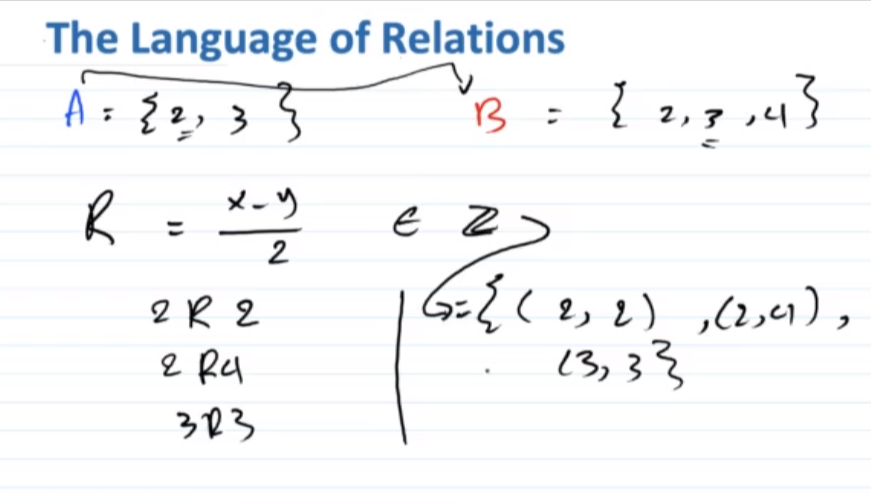 The Language of Relations
A = {2, 3} B = {2, 3, 4}
R = x-y/2 ∈ ℤ
2 R 2 = {(2, 2), (2,4),
2 R4 (3, 3}
3R3